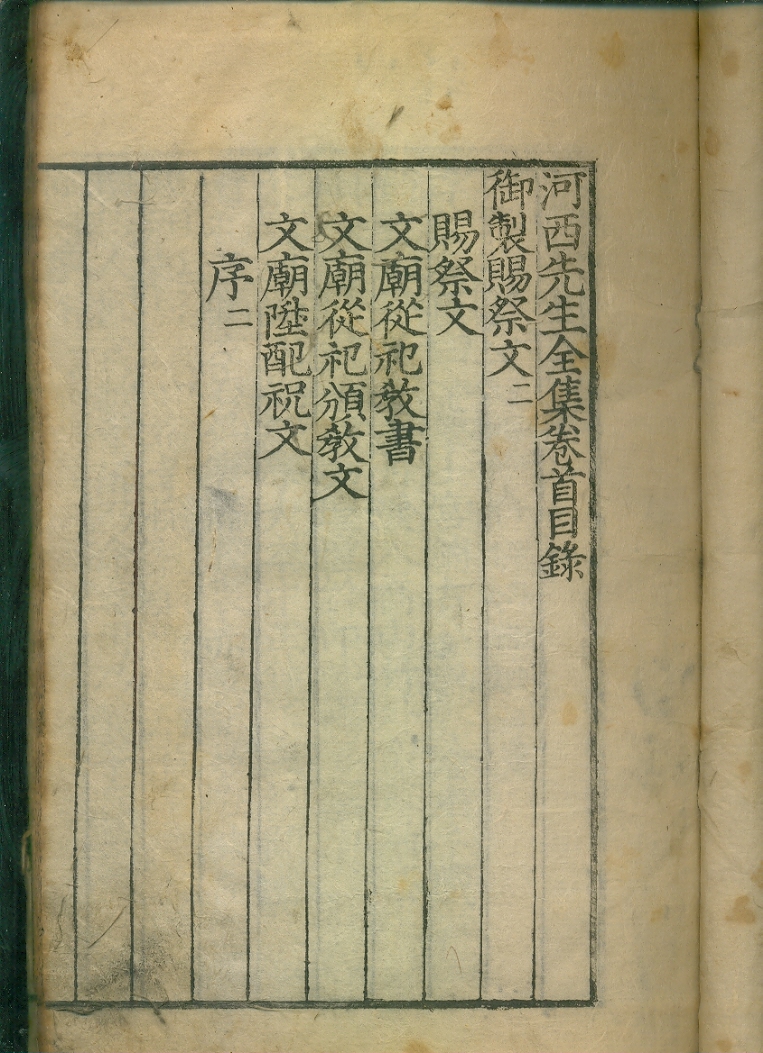 河西先生全集卷首目錄
御製賜祭文二
賜祭文
文廟從祀敎書
文廟從祀頒敎文
文廟陞配祝文
序二